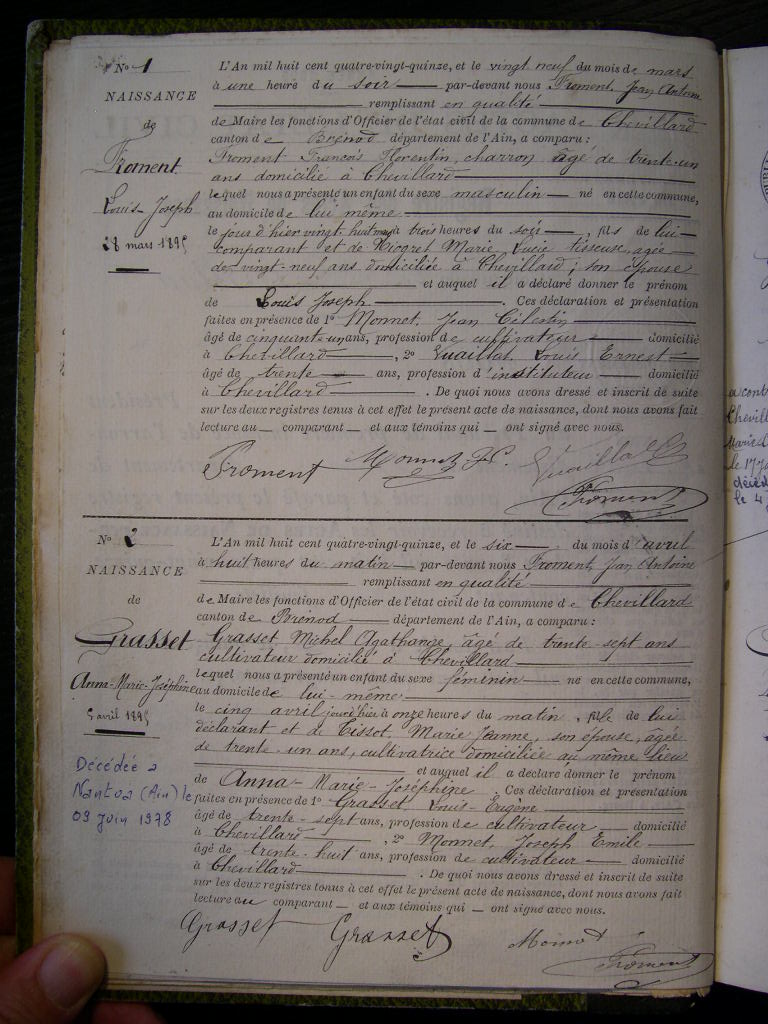 No 1
NAISSANCE
de
Froment
Louis-Joseph
28 mars 1895
L'An mil huit cent quatre-vingt-quinze, et le vingt neuf du mois de mars
à une heure du soir par-devant nous Froment, Jean Antoine
remplissant en qualité
de Maire les fonctions d'Officier de l'état civil de la commune de Chevillard
canton de Brénod département de l'Ain, a comparu :
Froment Francois Florentin, charron, âgé de trente-un
ans domicilié à Chevillard
lequel nous a présenté un enfant du sexe masculin né en cette commune,
au domicile de lui même
le jour d'hier vingt huit mars à trois heures du soir, fils de lui
comparant et de Nicoret Marie Lucie tisseuse, agée
de vingt-neuf ans domiciliée à Chevillard ; son épouse
et auquel il a déclaré donner le prénom
de Louis Joseph. Ces déclaration et présentation
faites en présence de 1° Monnet, Jean Célestin
âgé de cinquante-un ans, profession de cultivateur domicilié
à Chevillard, 2° Vuaillat, Louis Ernest
âgé de trente ans, profession d'instituteur domicilié
à Chevillard. De quoi nous avons dressé et inscrit de suite
sur les deux registres tenus à cet effet le présent acte de naissance, dont nous avons fait
lecture au comparant et aux témoins qui ont signé avec nous.
Froment Monnet J.C. Vuaillat
Froment
No 2
NAISSANCE
de
Grasset
Anna-Marie-Joséphine
5 avril 1895
Décédée a
Nantua (Ain) le
09 Juin 1978
L'An mil huit cent quatre-vingt-quinze, et le six du mois d'avril
à huit heures du matin par-devant nous Froment, Jean Antoine
remplissant en qualité
de Maire les fonctions d'Officier de l'état civil de la commune de Chevillard
canton de Brénod département de l'Ain, a comparu :
Grasset Michel Agathange, âgé de trente-sept ans
cultivateur domicilié à Chevillard
lequel nous a présenté un enfant du sexe féminin né en cette commune,
au domicile de lui-même
le cinq avril jour d'hier à onze heures du matin, fille de lui
déclarant et de Tissot, Marie Jeanne, son épouse, agée
de trente-un ans, cultivatrice domiciliée au même lieu
et auquel il a déclaré donner le prénom
de Anna-Marie-Joséphine. Ces déclaration et présentation
faites en présence de 1° Grasset, Louis-Eugène
âgé de trente-sept ans, profession de cultivateur domicilié
à Chevillard, 2° Monnet, Joseph Emile
âgé de trente-huit ans, profession de cultivateur domicilié
à Chevillard. De quoi nous avons dressé et inscrit de suite
sur les deux registres tenus à cet effet le présent acte de naissance, dont nous avons fait
lecture au comparant et aux témoins qui ont signé avec nous.
Grasset Grasset Monnet
Froment